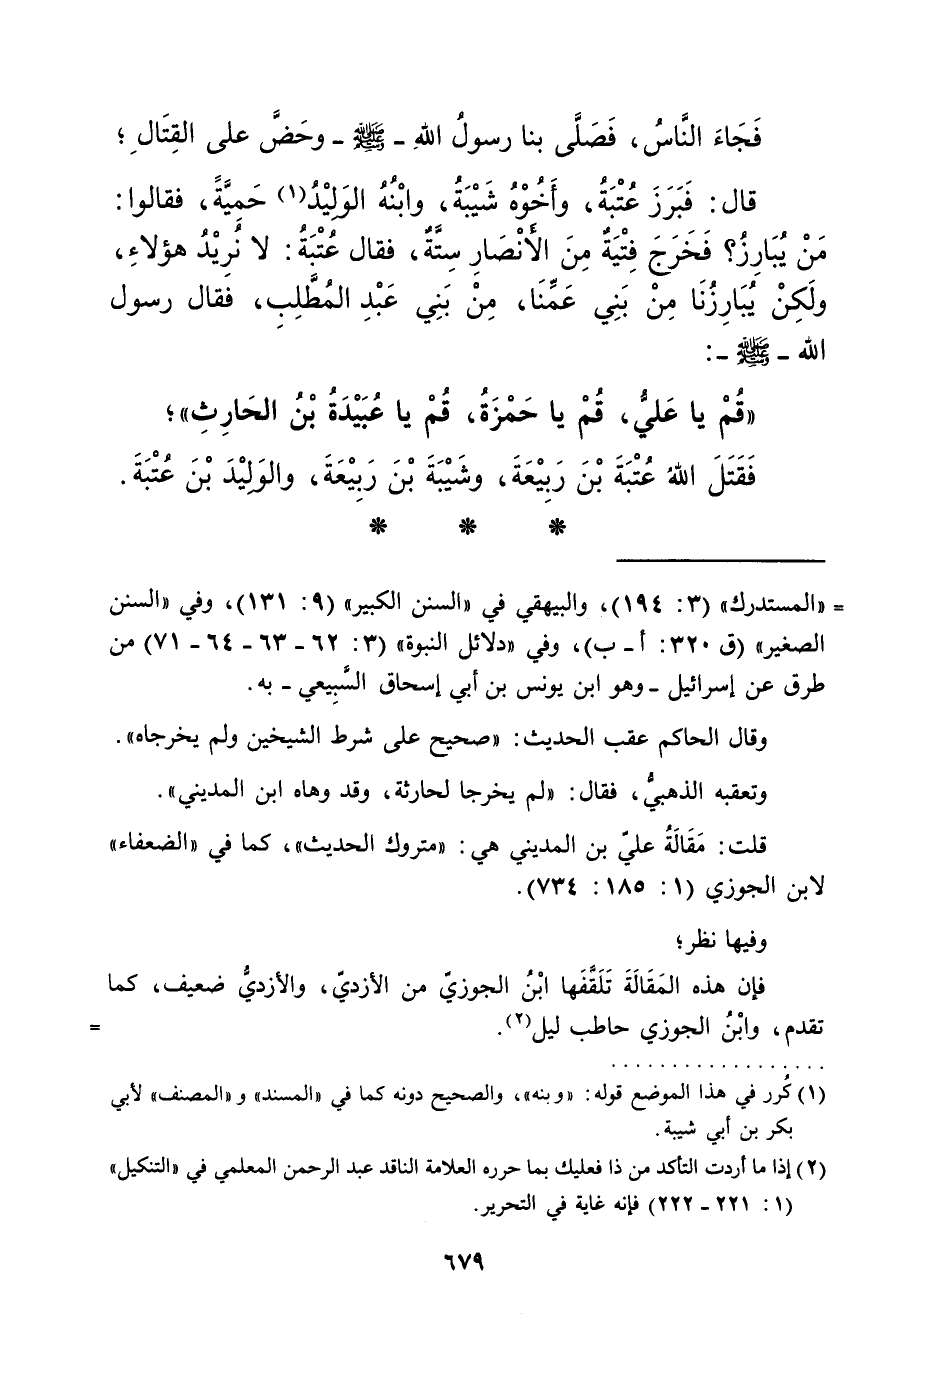 فَجَاءَ النَّاسُ، فَصَلَّى بنا رسولُ اللهِ ـ ﷺ ـ وحَضَّ على القِتَالِ ؛
قال: فَبَرَزَ عُتْبَةُ، وأَخُوْهُ شَيْبَةُ، وابْنُهُ الوَلِيْدُ(١) حَمِيَّةً، فقالوا:
مَنْ يُبَارِزُ؟ فَخَرَجَ فِتْيَةٌ مِنَ الأَنْصَارِ سِتَّةٌ، فقال عُتْبَةُ: لا نُرِيْدُ هؤلاءِ،
ولَكِنْ يُبَارِزُنَا مِنْ بَنِي عَمِّنَا، مِنْ بَنِي عَبْدِ المُطَّلِبِ، فَقال رسول
الله ـ ﷺ ـ:
«قُمْ يا عَليُّ، قُمْ يا حَمْزَةُ، قُمْ يا عُبَيْدَةُ بْنُ الحَارِثِ»؛
فَقَتَلَ اللهُ عُتْبَةَ بْنَ رَبِيْعَةَ، وشَيْبَةَ بْنَ رَبِيْعَةَ، والوَلِيْدَ بْنَ عُتْبَةَ.
* * *
= «المستدرك» (٣: ١٩٤)، والبيهقي في «السنن الكبير» (٩: ١٣١)، وفي «السنن
الصغير» (ق ٣٢٠: أ ـ ب)، وفي «دلائل النبوة» (٣: ٦٢ ـ ٦٣ ـ ٦٤ ـ ٧١) من
طرق عن إسرائيل ـ وهو ابن يونس بن أبي إسحاق السَّبِيعي ـ به.
وقال الحاكم عقب الحديث: «صحيح على شرط الشيخين ولم يخرجاه».
وتعقبه الذهبيُّ، فقال: «لم يخرجا لحارثة، وقد وهاه ابن المديني».
قلت: مَقَالَةُ عليّ بن المديني هي: «متروك الحديث»، كما في «الضعفاء»
لابن الجوزي (١: ١٨٥: ٧٣٤).
وفيها نظر؛
فإن هذه المَقَالَةَ تَلَقَّفَها ابْنُ الجوزيّ من الأزديّ، والأزديُّ ضعيف، كما
تقدم، وابْنُ الجوزي حاطب ليل(٢). =
(١) كُرر في هذا الموضع قوله: «وبنه»، والصحيح دونه كما في «المسند» و «المصنف» لأبي
بكر بن أبي شيبة.
(٢) إذا ما أردت التأكد من ذا فعليك بما حرره العلامة الناقد عبد الرحمن المعلمي في «التنكيل»
(١: ٢٢١ ـ ٢٢٢) فإنه غاية في التحرير.
٦٧٩